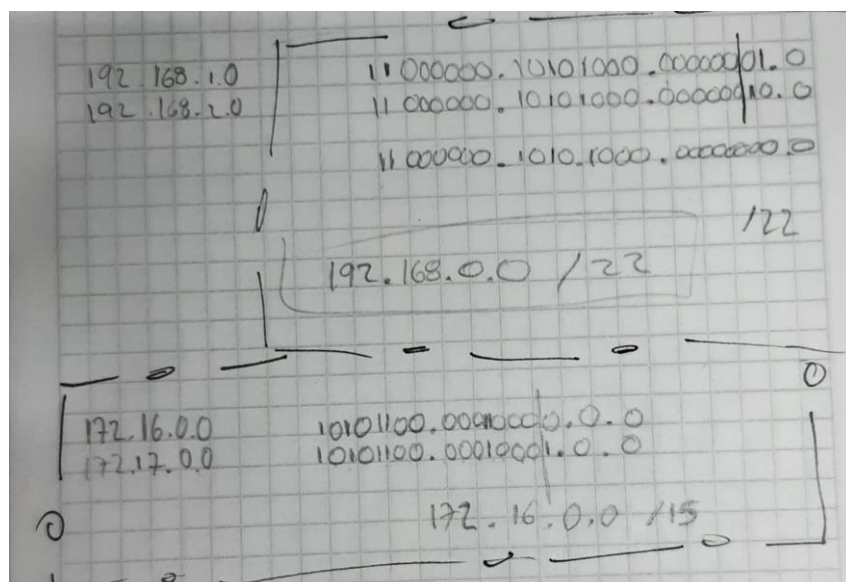 192.168.1.0 11000000.10101000.00000001.0
192.168.2.0 11000000.10101000.00000010.0
11000000.1010.1000.00000000.0
/22
192.168.0.0 /22
172.16.0.0 10101100.00010000.0.0
172.17.0.0 10101100.00010001.0.0
172.16.0.0 /15